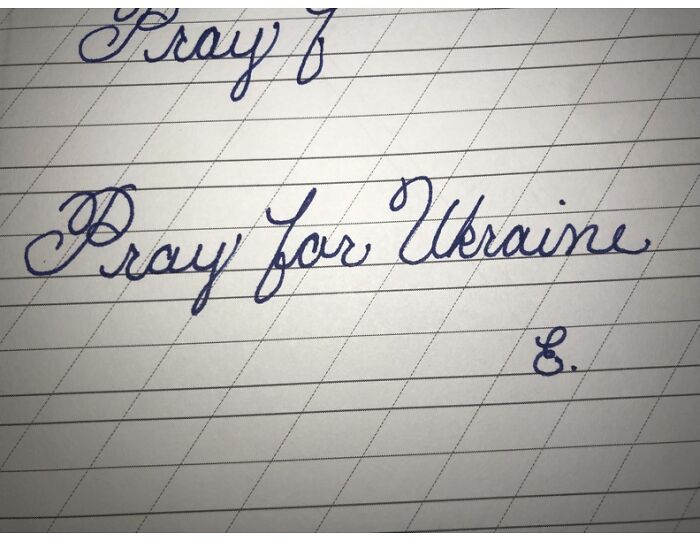 Pray f
Pray for Ukraine
E.